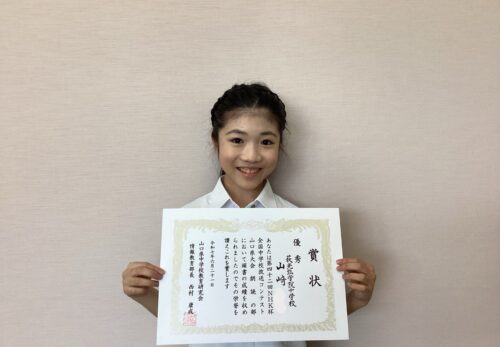 賞状
優秀
萩光塩学院中学校
山﨑
あなたは第四十二回NHK杯
全国中学校放送コンテスト
山口県大会 朗読の部
において頭書の成績を収め
られましたのでその栄誉を
讃えこれを賞します
令和七年六月二十一日
山口県中学校教育研究会
情報教育部長 西村